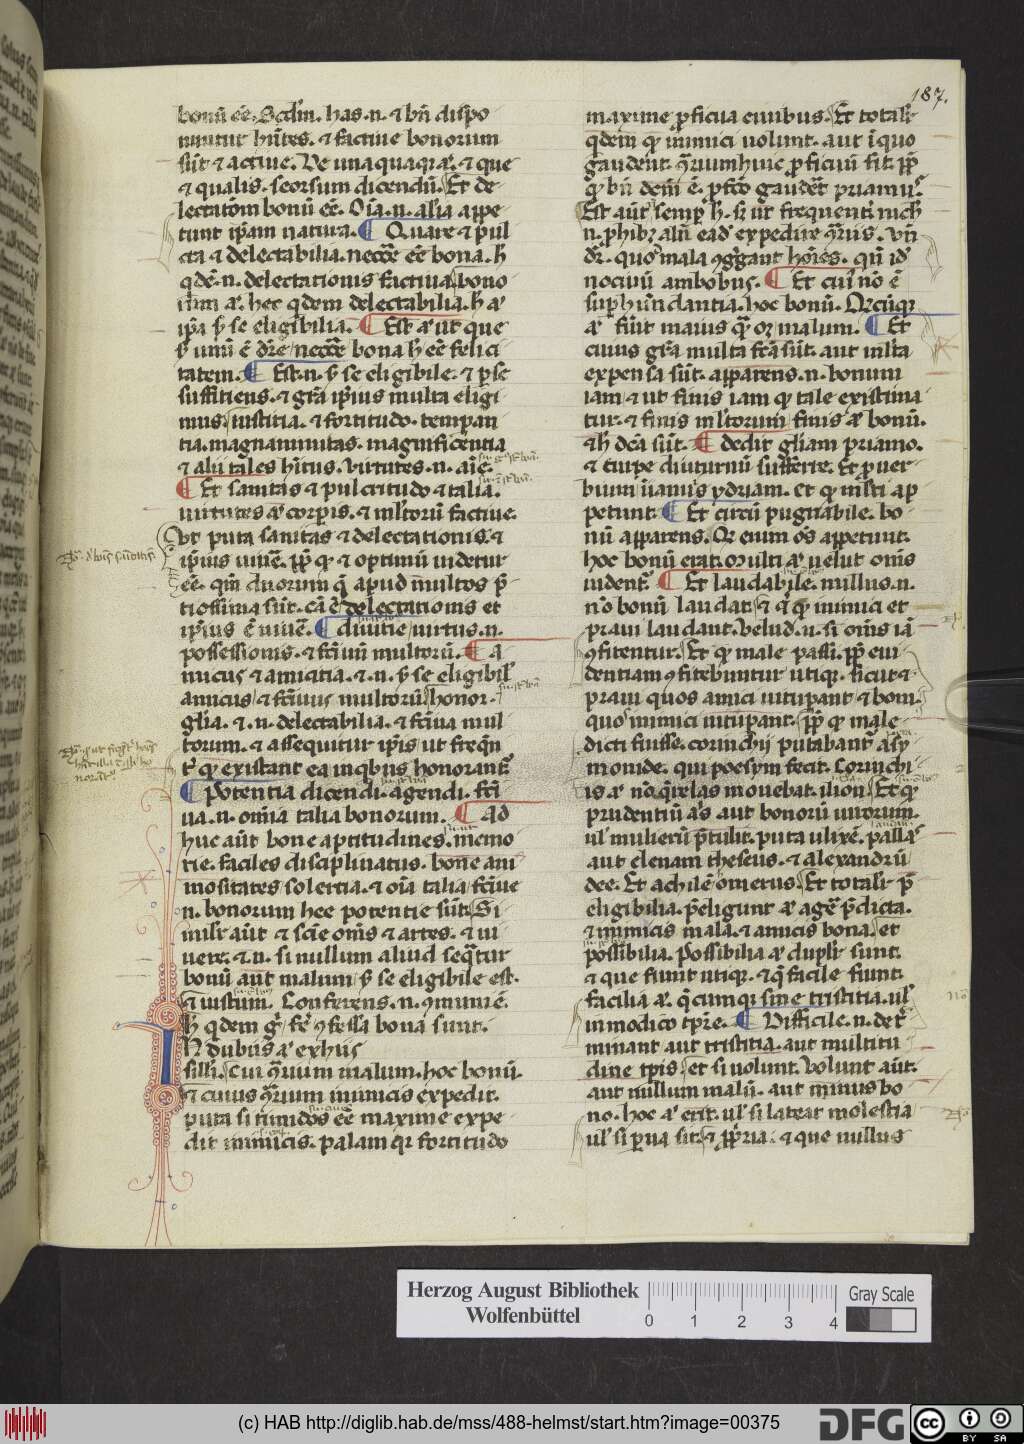 187.
bonū eē. Scdm̄. has .n. ⁊ bn̄ dispo
nuntur hn̄tes. ⁊ factiue bonorum
sūt ⁊ actiue. De unaquaqꝫ aͣ. ⁊ que
⁊ qualis. seorsum dicendū. Et de
lectatōem bonū eē. Oīa .n. alīa appe
tunt ip̄am natura. ¶ Quare ⁊ pul
cra ⁊ delectabilia. necc̄e eē bona. h̄
qdē .n. delectationis factiua bono
rum aͣ. hec qdem delectabilia. h̄ aͣ
ip̄a ꝑ se eligibilia. ¶ Est aͣ ut que
ꝑ unū ē dr̄e necc̄e bona h̄ eē felici
tatem. ¶ Est .n. ꝑ se eligibile. ⁊ ꝑ se
sufficiens. ⁊ gr̄a ipsius multa eligi
mus. iustitia. ⁊ fortitudo. temperan
tia. magnanimitas. magnificentia
⁊ alii tales hītus. virtutes .n. aīe.
¶ Et sanitas ⁊ pulcritudo ⁊ talia.
uirtutes aͣ corpis. ⁊ mltorū factiue.
Ut puta sanitas ⁊ delectationis. ⁊
ipsius uiuē. pp̄ qꝫ ⁊ optimū uidetur
eē. qm̄ duorum q̄ apud multos p̄
tiosissima sūt. cā ē delectationis et
ipsius ē uiuē. ¶ diuitie uirtus .n.
possessionis. ⁊ fc̄iuū multorū. ¶ A
micus ⁊ amicitia. ⁊ .n. ꝑ se eligibil
amicus ⁊ fc̄iuus multorū honor.
glīa. ⁊ .n. delectabilia. ⁊ fc̄iua mul
torum. ⁊ assequitur ipis ut freqn̄
tr̄ qꝫ existant ea in qbus honorant̄.
¶ Potentia dicendi. agendi. fc̄i
ua .n. omia talia bonorum. ¶ Ad
huc aūt bone aptitudines. memo
rie. faciles disciplinatus. bone ani
mositates solertia. ⁊ oīa talia fc̄iue
.n. bonorum hee potentie sūt. Si
militr aūt ⁊ scīe omis ⁊ artes. ⁊ ui
uere. ⁊ .n. si nullum aliud seqr̄etur
bonū aūt malum ꝑ se eligibile est.
⁊ iustum. Conferens .n. ꝯmuni ē.
h̄ qdem gͥ ferē ꝯfessa bona sunt.
In dubiis aͣ ex hiis
silli. Cui ꝯrium malum. hoc bonū.
⁊ cuius ꝯrium inimicis expedit.
puta si timidos eē maxime expe
dit inimicis. palam qr fortitudo
maxime ꝓficua ciuibus. Et totalr
qdem qꝫ inimici uolunt. aut ī quo
gaudent. ꝯrium huic ꝓficiuū fit. pp̄
qꝫ bn̄ dem̄ ē. ꝓfco gaudet priamus.
Est aūt semp h̄. s̄ ut frequent. nich
.n. ꝓhibꝫ aliū eadē expedire ꝯriis. vn̄
dr̄. quos mala ꝯgregant hoīes. qn̄ id
nociuū ambobus. ¶ Et cui nō ē
suphūndantia. hoc bonū. Qicūqꝫ
aͣ fiūt maius qꝫ oꝫ malum. ¶ Et
cuius gr̄a multa fc̄a sūt. aut mlta
expensa sūt. apparens .n. bonum
iam ⁊ ut finis iam qꝫ tale existima
tur. ⁊ finis mltorum finis aͣ bonū.
⁊ h̄ dc̄a sūt. ¶ dedit gl̄iam priamo.
⁊ turpe diuturnū sufferre. Et ꝓuer
bium in ianuis ydriam. et qꝫ mlti ap
petunt. ¶ Et circū pugnabile. bo
nū apparens. Qr enim os̄ appetunt.
hoc bonū erat. multi aͣ uelut omis
uident̄. ¶ Et laudabile. nullus .n.
nō bonū laudat. ⁊ q̄ qꝫ inimici et
praui laudant. velud .n. si omis iā
ꝯfitentur. Et qꝫ male passi. pp̄ eui
dentiam ꝯfitebuntur utiqꝫ. sicut ⁊
praui quos amici uitupant ⁊ boni.
quos inimici uitupant. pp̄ qꝫ male
dicti fuisse. corinthii putabant a sy
monide. qui poesym fecit. Corinthi
is aͣ nō qrelas mouebat ilion. Et qꝫ
prudentiū ās aut bonorū uirorum.
ul mulierū p̄tulit. puta ulixē. pallas
aut elenam theseus. ⁊ alexandrū
dee. Et achilē omerus. Et totalr p̄
eligibilia. p̄eligunt aͣ agē p̄dicta.
⁊ inimicis mala. ⁊ amicis bona. et
possibilia. Possibilia aͣ duplr sunt.
⁊ que fiunt utiqꝫ. ⁊ q̄ facile fiunt.
facilia aͣ. qcumqꝫ sine tristitia. ul
in modico tpr̄e. ¶ Difficile .n. det̄
minant aut tristitia. aut multitu
dine tpis. et si uolunt. Volunt aūt.
aut nullum malū. aut minus bo
no. hoc aͣ erit. ul si lateat molestia
ul si ꝑua sit. ⁊ ꝓpria. ⁊ que nullus
Herzog August Bibliothek
Wolfenbüttel
0 1 2 3 4
Gray Scale
(c) HAB http://diglib.hab.de/mss/488-helmst/start.htm?image=00375
DFG
cc BY SA